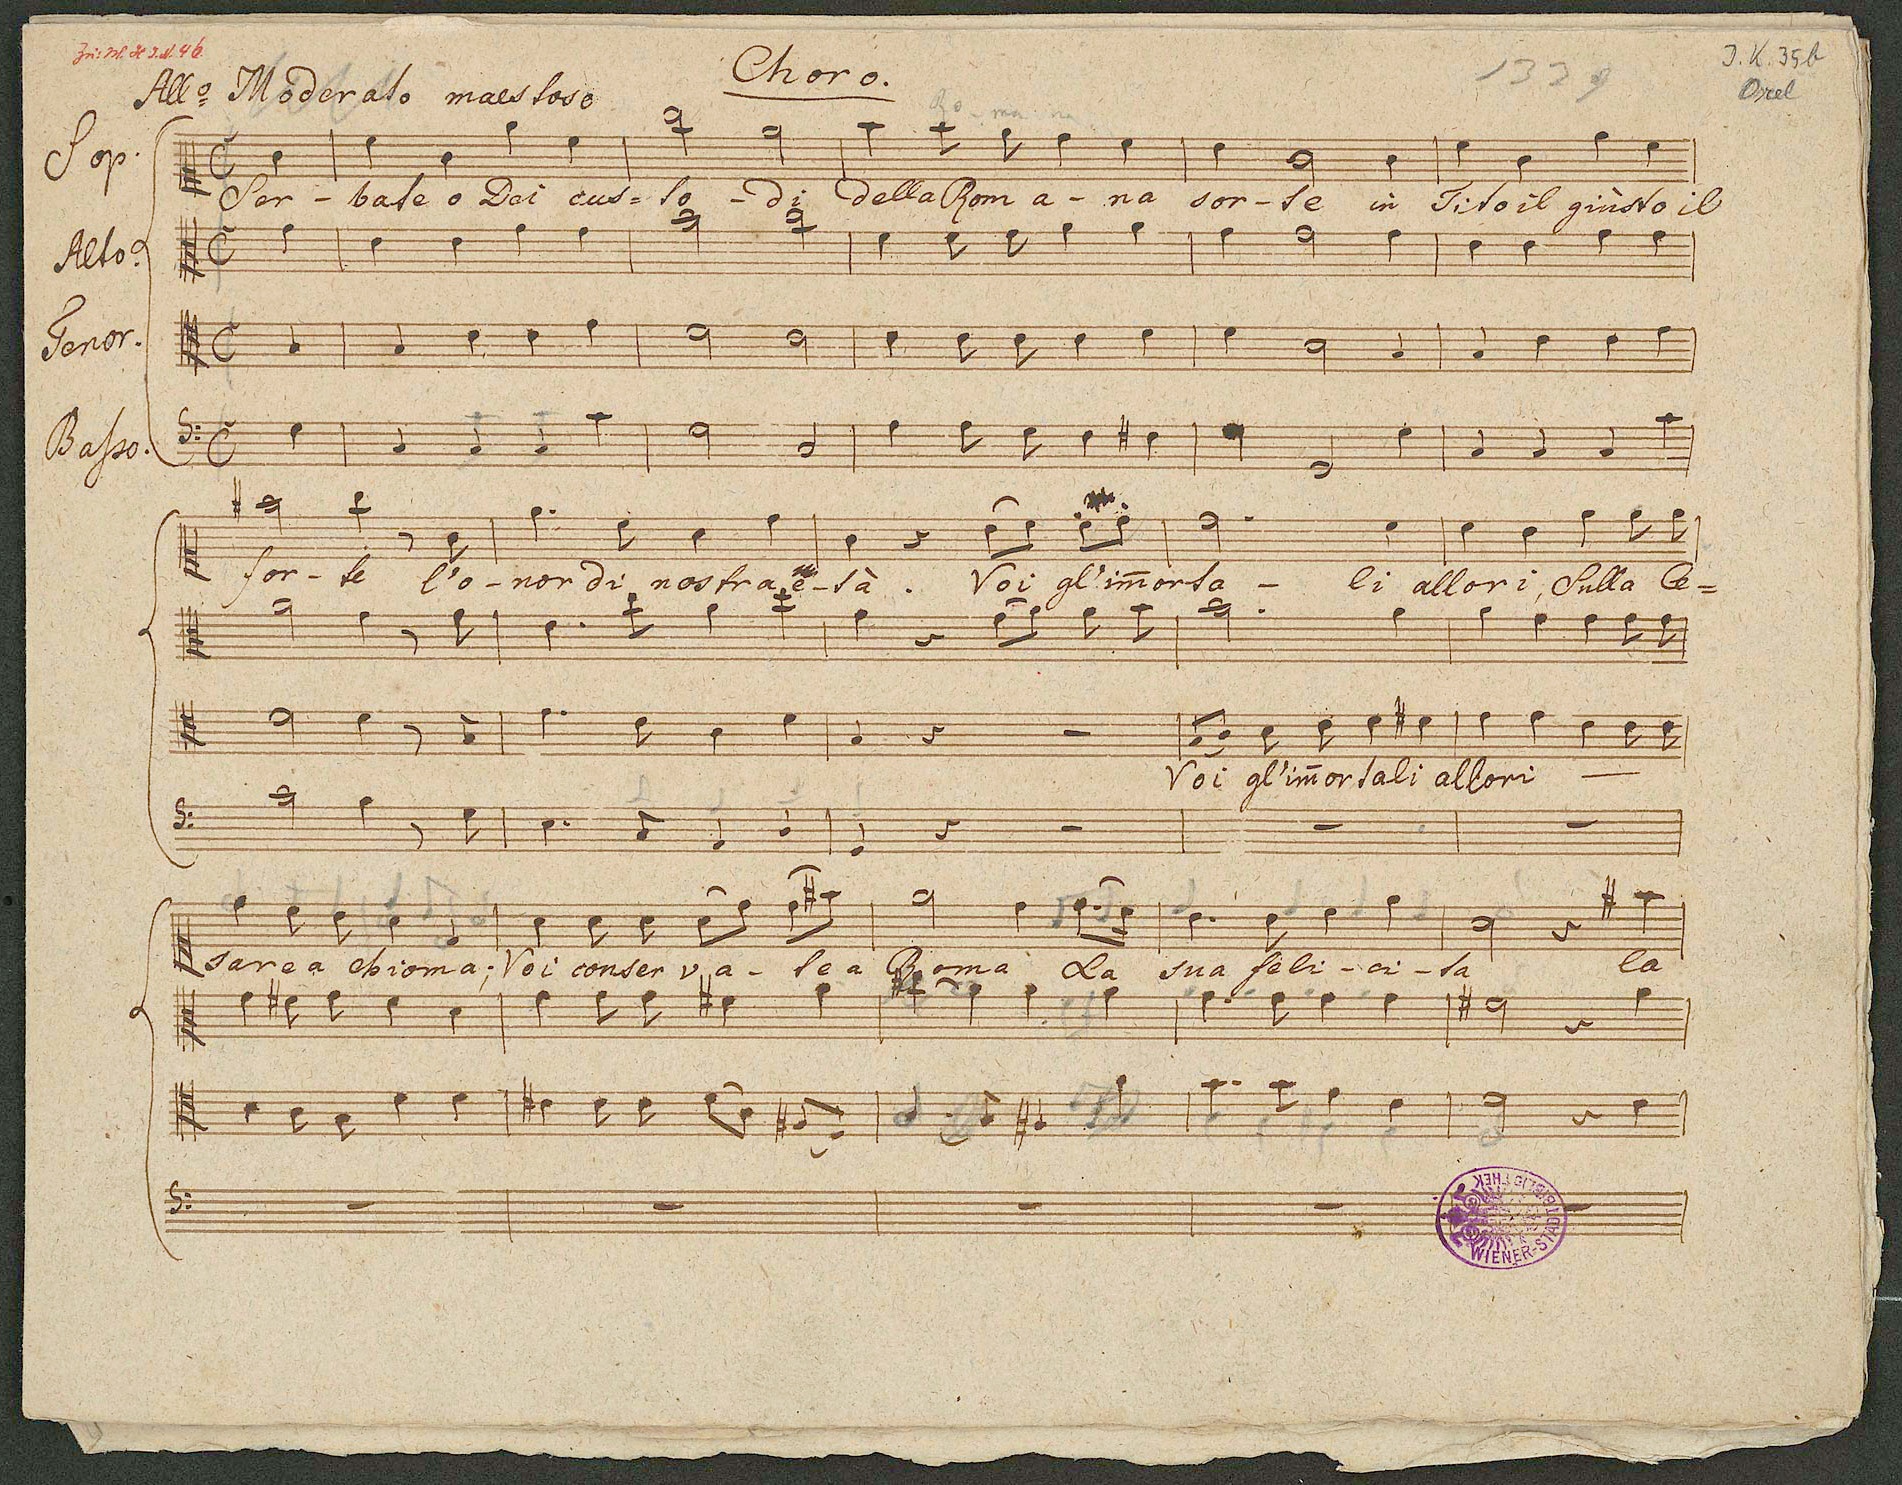 Choro.
J. K. 35b
Orel
1329
Allo Moderato maestoso
Ro - ma na
Sop.
Ser - bate o Dei cus= to - di della Rom a - na sor - te in Tito il giùsto il
Alto.
Tenor.
Basso.
for - te l'o - nor di nostra e - tà . Voi gl'im̄orta - li allori, Sulla Ce=
Voi gl'im̄ortali allori —
sarea chioma; Voi conser va - te a Roma La sua feli - ci - ta la
WIENER-STADTBIBLIOTHEK